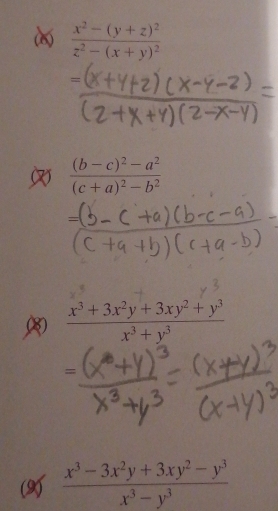 (6) x² − (y + z)² / z² − (x + y)²
= (x+y+z)(x-y-z) / (z+x+y)(z-x-y) =
(7) (b − c)² − a² / (c + a)² − b²
= (b-c+a)(b-c-a) / (c+a+b)(c+a-b)
(8) x³ + 3x²y + 3xy² + y³ / x³ + y³
= (x+y)³ / x³+y³ = (x+y)³ / (x+y)³
(9) x³ − 3x²y + 3xy² − y³ / x³ − y³